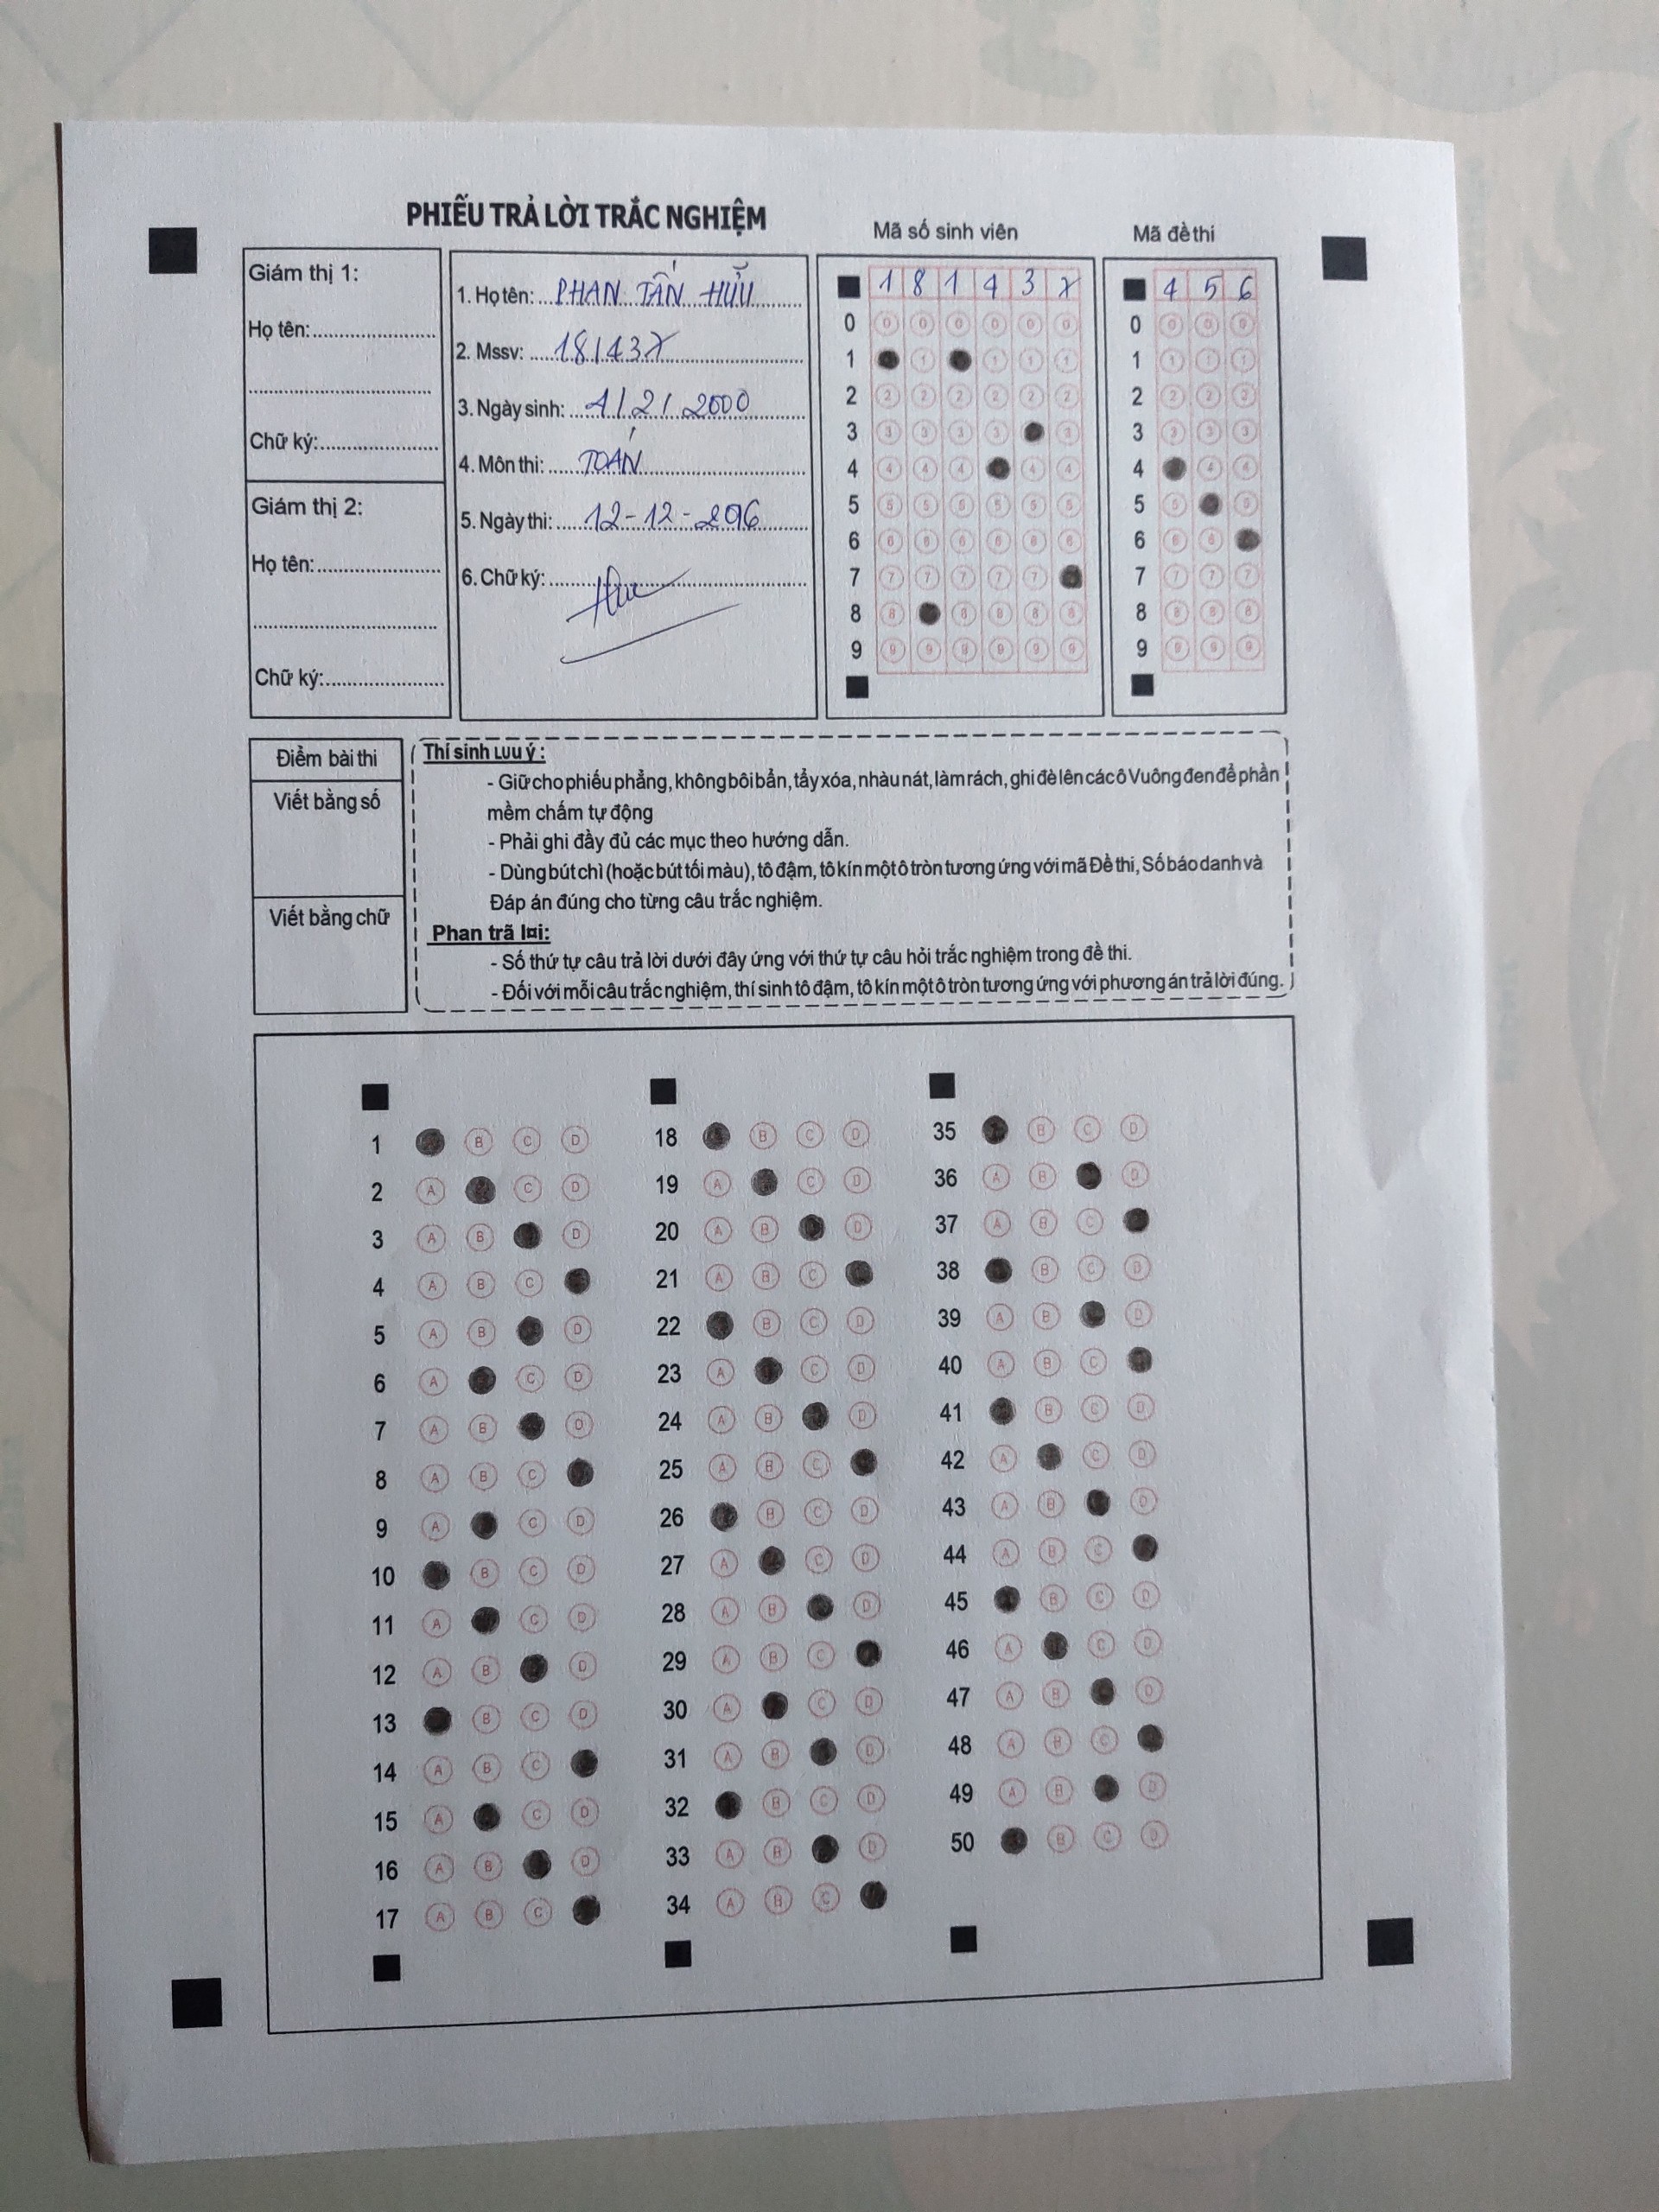 PHIẾU TRẢ LỜI TRẮC NGHIỆM
Giám thị 1:
Họ tên:
Chữ ký:
Giám thị 2:
Họ tên:
Chữ ký:
1. Họ tên: PHAN TẤN HỮU
2. Mssv: 181437
3. Ngày sinh: 1/2/2000
4. Môn thi: TOÁN
5. Ngày thi: 12-12-2016
6. Chữ ký:
Mã số sinh viên
1 8 1 4 3 7
0 0 0 0 0 0 0
1 1 1 1 1
2 2 2 2 2 2 2
3 3 3 3 3 3
4 4 4 4 4 4
5 5 5 5 5 5 5
6 6 6 6 6 6 6
7 7 7 7 7 7
8 8 8 8 8 8
9 9 9 9 9 9 9
Mã đề thi
4 5 6
0 0 0 0
1 1 1 1
2 2 2 2
3 3 3 3
4 4 4
5 5 5
6 6 6
7 7 7 7
8 8 8 8
9 9 9 9
Điểm bài thi
Viết bằng số
Viết bằng chữ
Thí sinh Lưu ý :
- Giữ cho phiếu phẳng, không bôi bẩn, tẩy xóa, nhàu nát, làm rách, ghi đè lên các ô Vuông đen để phần
mềm chấm tự động
- Phải ghi đầy đủ các mục theo hướng dẫn.
- Dùng bút chì (hoặc bút tối màu), tô đậm, tô kín một ô tròn tương ứng với mã Đề thi, Số báo danh và
Đáp án đúng cho từng câu trắc nghiệm.
Phan trã l¤i:
- Số thứ tự câu trả lời dưới đây ứng với thứ tự câu hỏi trắc nghiệm trong đề thi.
- Đối với mỗi câu trắc nghiệm, thí sinh tô đậm, tô kín một ô tròn tương ứng với phương án trả lời đúng.
1 B C D
2 A C D
3 A B D
4 A B C
5 A B D
6 A C D
7 A B D
8 A B C
9 A C D
10 B C D
11 A C D
12 A B D
13 B C D
14 A B C
15 A C D
16 A B D
17 A B C
18 B C D
19 A C D
20 A B D
21 A B C
22 B C D
23 A C D
24 A B D
25 A B C
26 B C D
27 A C D
28 A B D
29 A B C
30 A C D
31 A B D
32 B C D
33 A B D
34 A B C
35 B C D
36 A B D
37 A B C
38 B C D
39 A B D
40 A B C
41 B C D
42 A C D
43 A B D
44 A B C
45 B C D
46 A C D
47 A B D
48 A B C
49 A B D
50 B C D